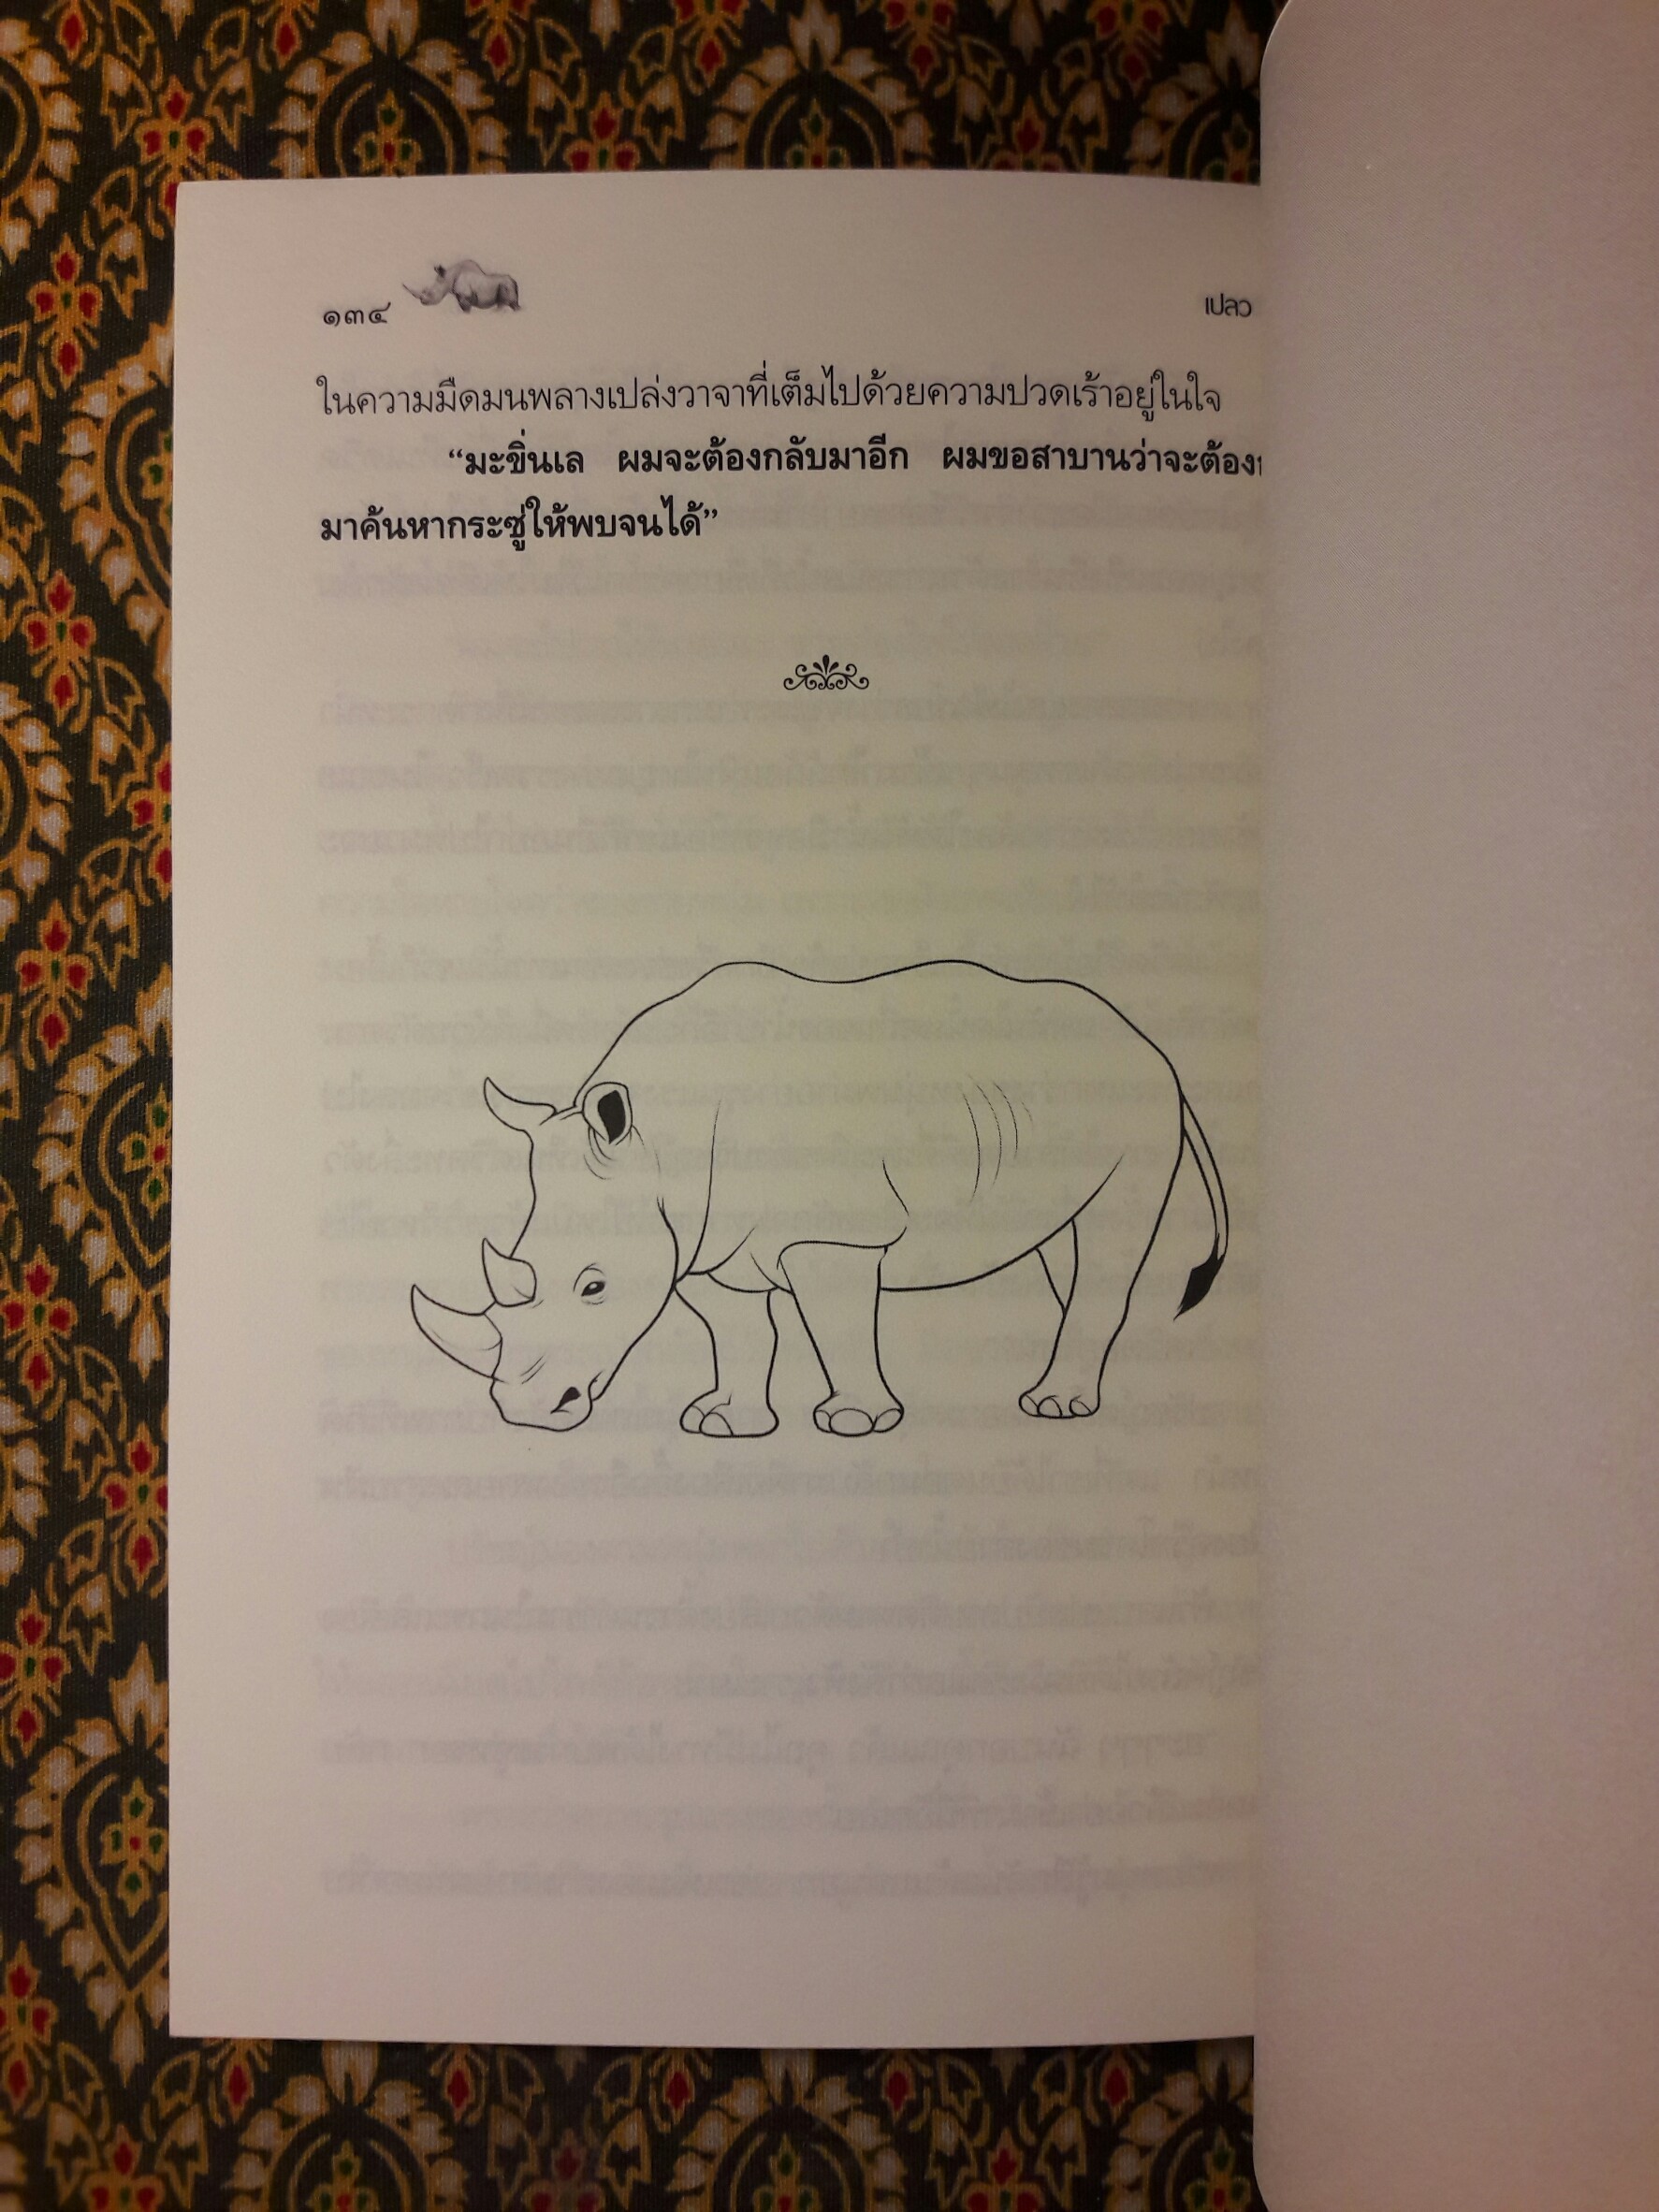 ๑๓๔
เปลว
ในความมืดมนพลางเปล่งวาจาที่เต็มไปด้วยความปวดเร้าอยู่ในใจ
“มะขิ่นเล ผมจะต้องกลับมาอีก ผมขอสาบานว่าจะต้อง
มาค้นหากระซู่ให้พบจนได้”